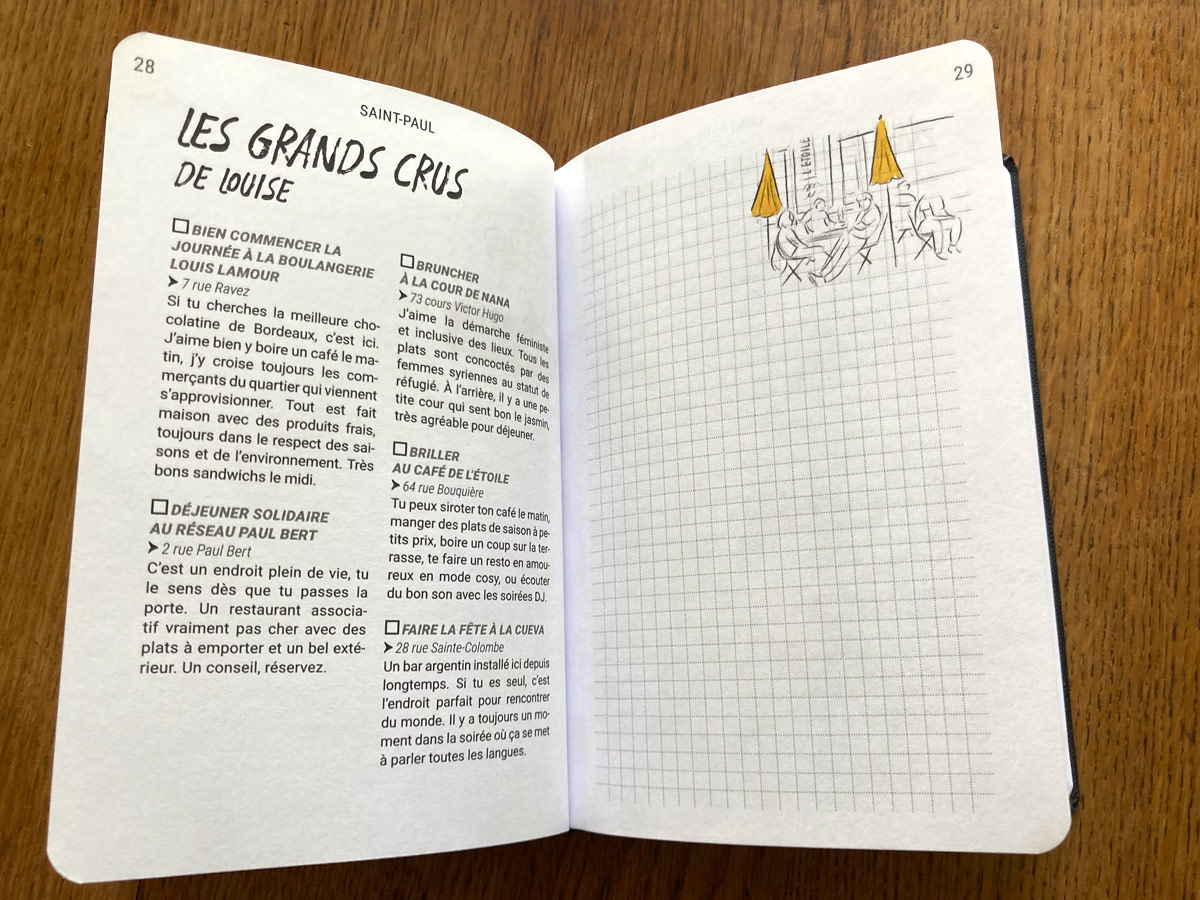 28
SAINT-PAUL
LES GRANDS CRUS
DE LOUISE
BIEN COMMENCER LA
JOURNÉE À LA BOULANGERIE
LOUIS LAMOUR
➤ 7 rue Ravez
Si tu cherches la meilleure cho-
colatine de Bordeaux, c'est ici.
J'aime bien y boire un café le ma-
tin, j'y croise toujours les com-
merçants du quartier qui viennent
s'approvisionner. Tout est fait
maison avec des produits frais,
toujours dans le respect des sai-
sons et de l'environnement. Très
bons sandwichs le midi.
DÉJEUNER SOLIDAIRE
AU RÉSEAU PAUL BERT
➤ 2 rue Paul Bert
C'est un endroit plein de vie, tu
le sens dès que tu passes la
porte. Un restaurant associa-
tif vraiment pas cher avec des
plats à emporter et un bel exté-
rieur. Un conseil, réservez.
BRUNCHER
À LA COUR DE NANA
➤ 73 cours Victor Hugo
J'aime la démarche féministe
et inclusive des lieux. Tous les
plats sont concoctés par des
femmes syriennes au statut de
réfugié. À l'arrière, il y a une pe-
tite cour qui sent bon le jasmin,
très agréable pour déjeuner.
BRILLER
AU CAFÉ DE L'ÉTOILE
➤ 64 rue Bouquière
Tu peux siroter ton café le matin,
manger des plats de saison à pe-
tits prix, boire un coup sur la ter-
rasse, te faire un resto en amou-
reux en mode cosy, ou écouter
du bon son avec les soirées DJ.
FAIRE LA FÊTE À LA CUEVA
➤ 28 rue Sainte-Colombe
Un bar argentin installé ici depuis
longtemps. Si tu es seul, c'est
l'endroit parfait pour rencontrer
du monde. Il y a toujours un mo-
ment dans la soirée où ça se met
à parler toutes les langues.
29